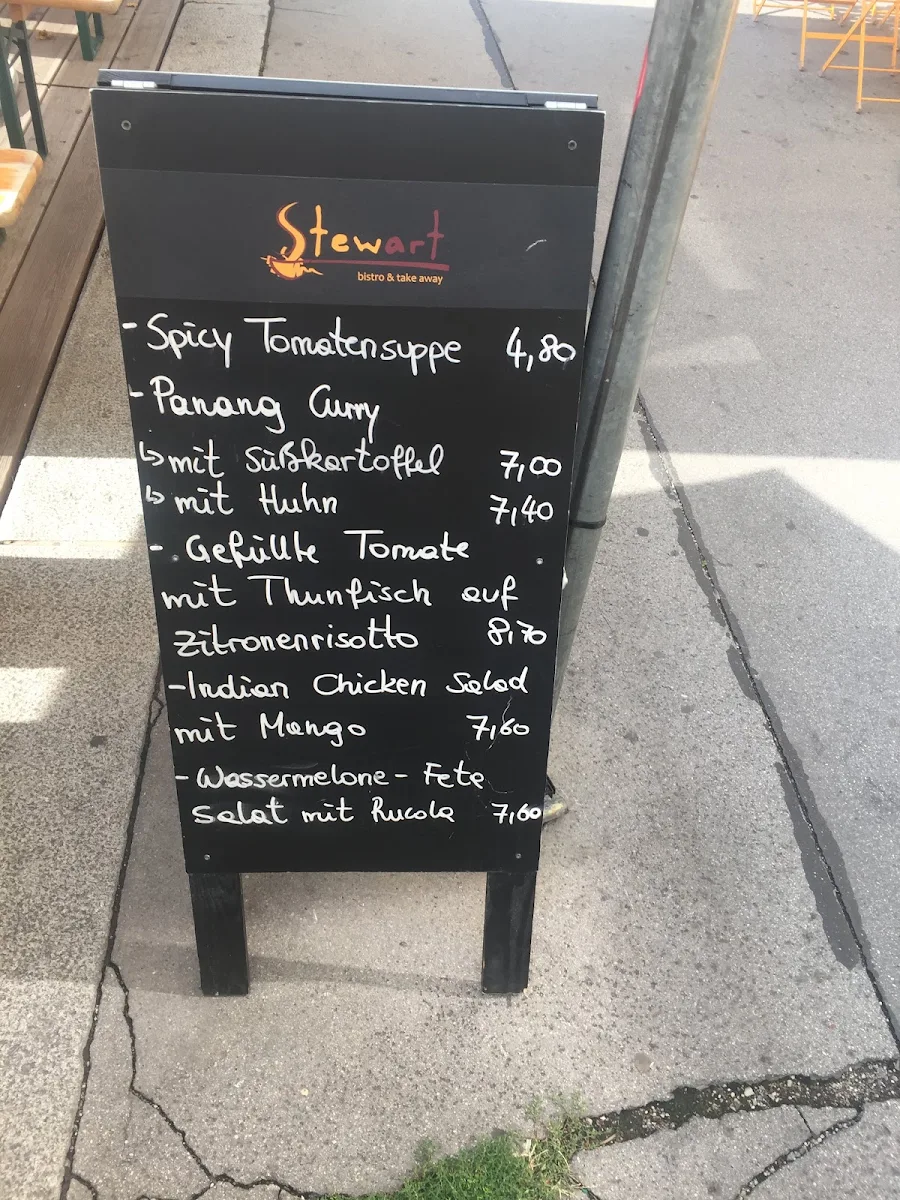 Stewart
bistro & take away
- Spicy Tomatensuppe 4,80
- Panang Curry
↳ mit Süßkartoffel 7,00
↳ mit Huhn 7,40
- Gefüllte Tomate
mit Thunfisch auf
Zitronenrisotto 8,70
- Indian Chicken Salad
mit Mango 7,60
- Wassermelone - Feta
Salat mit Rucola 7,60